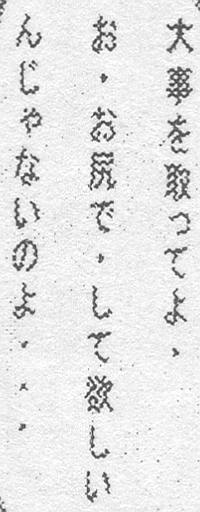 大事を取ってよ、
お、お尻で、して欲しい
んじゃないのよ・・・